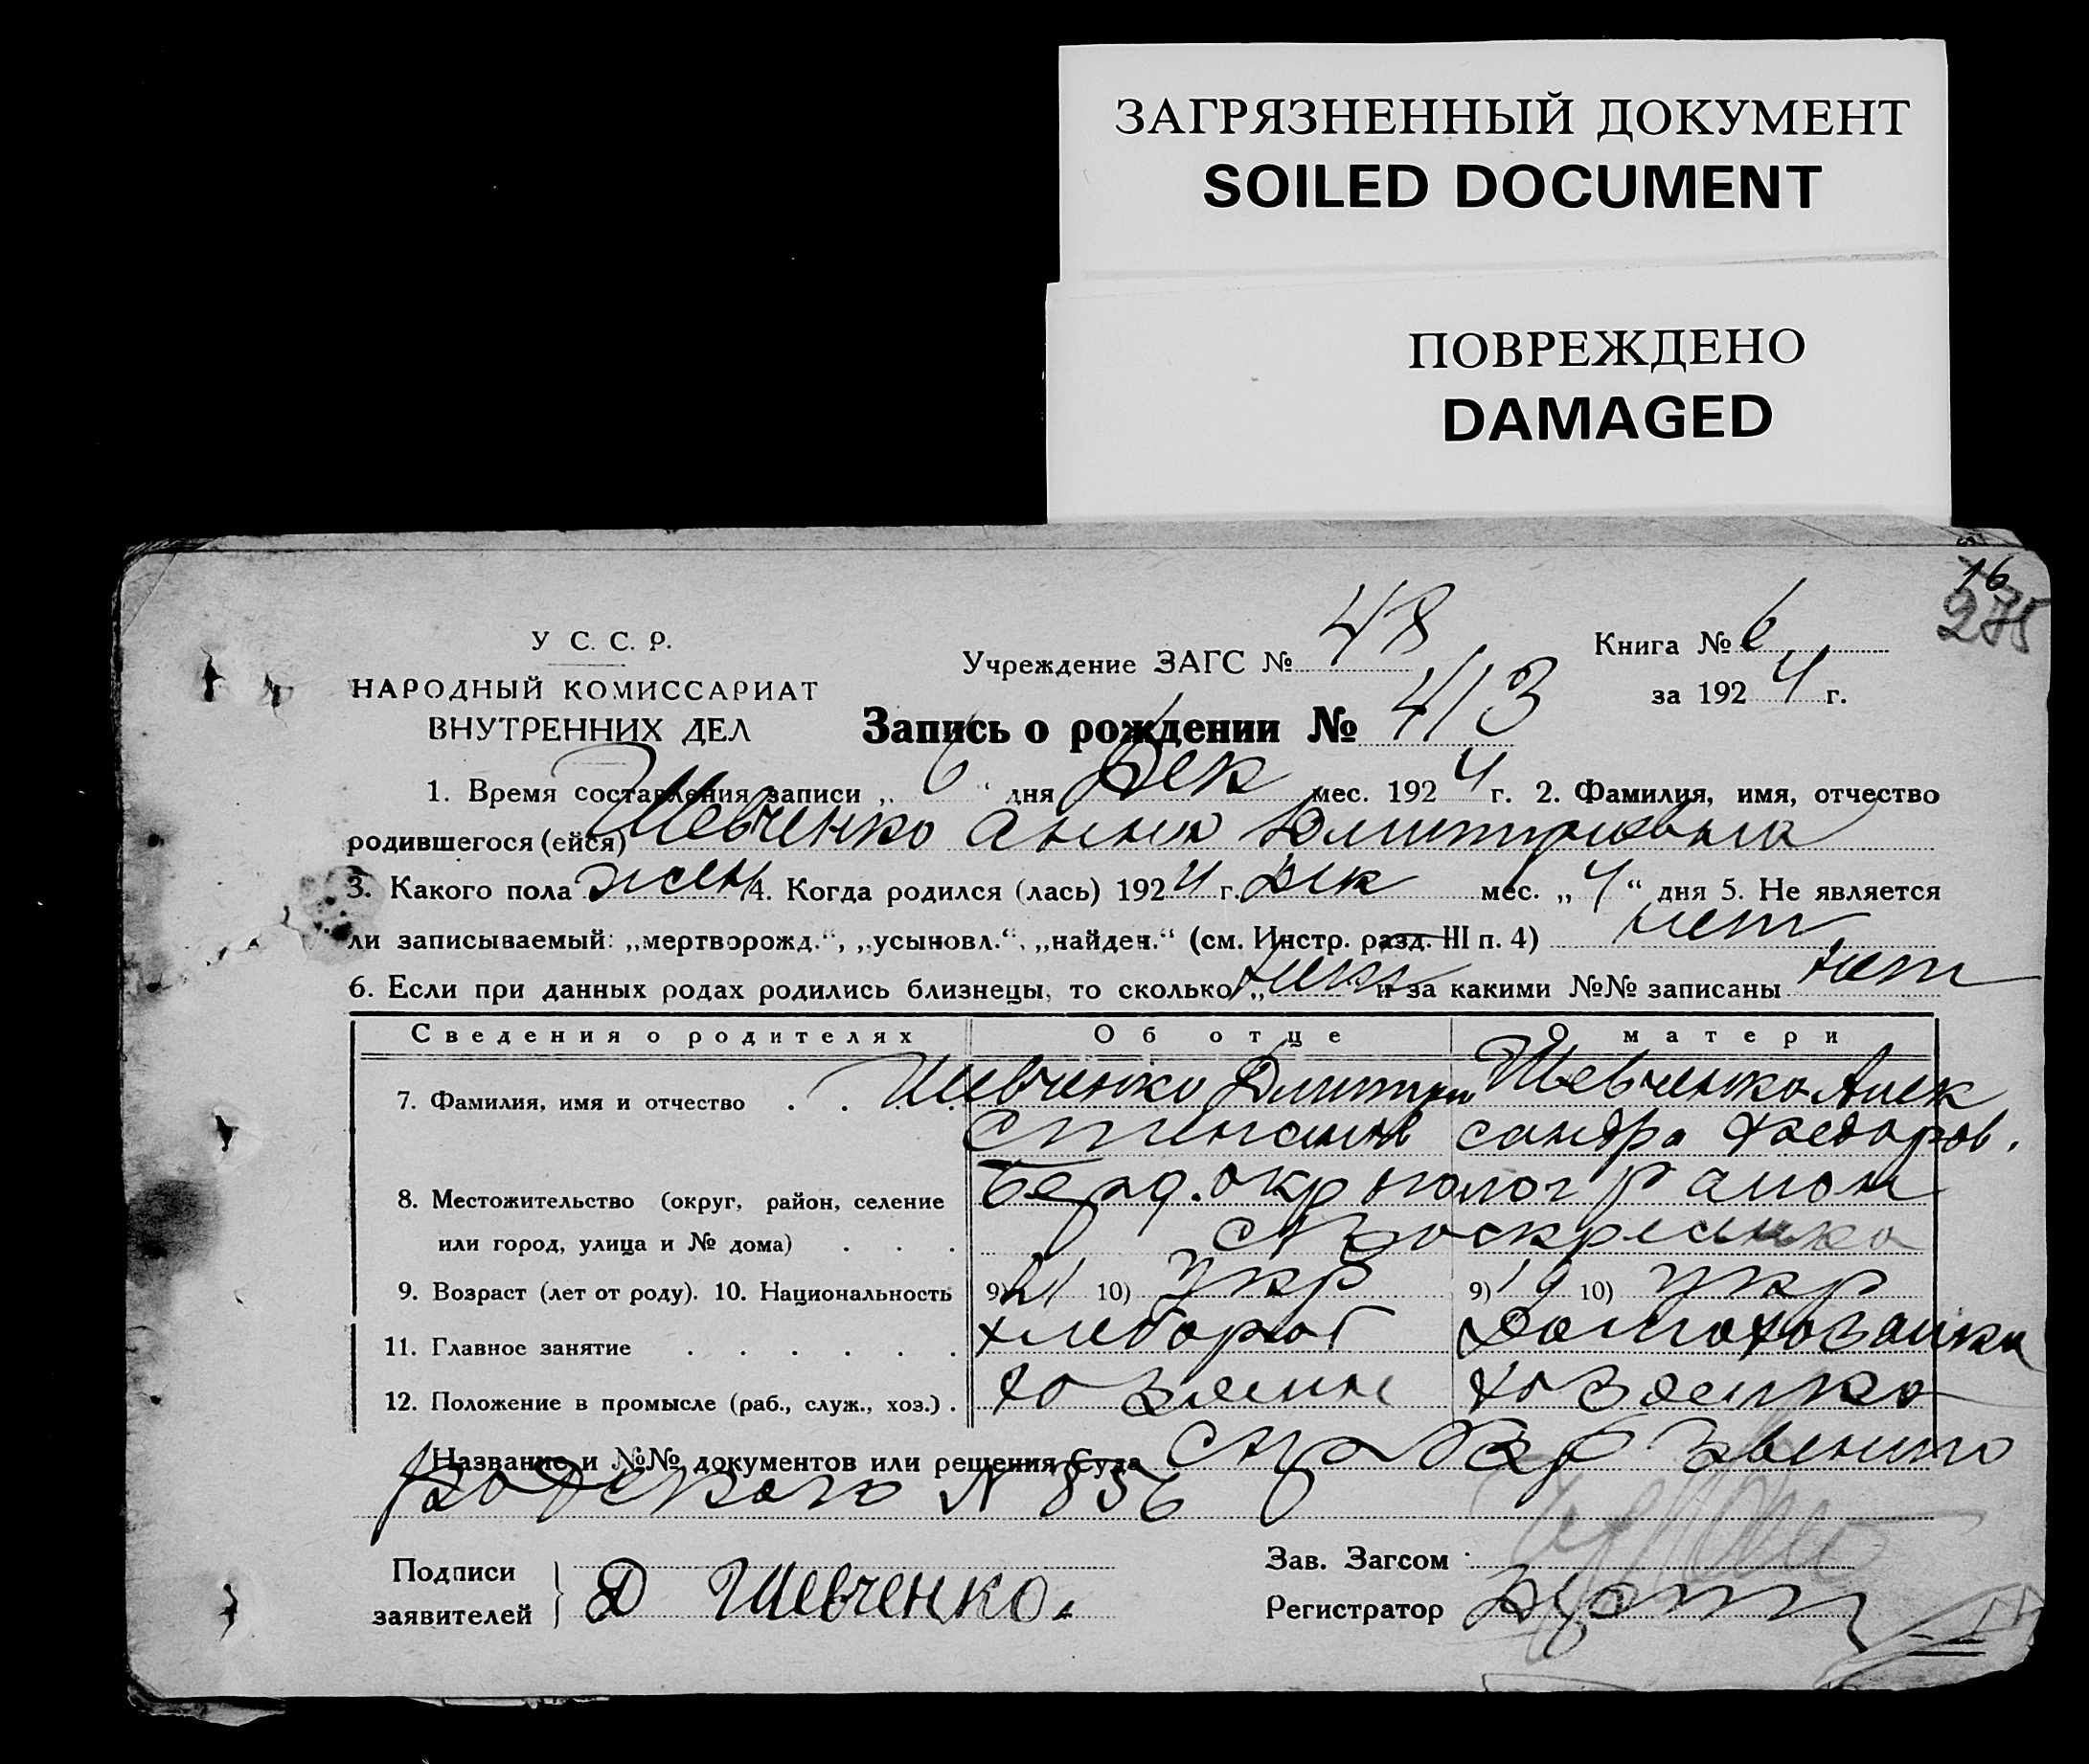 ЗАГРЯЗНЕННЫЙ ДОКУМЕНТ
SOILED DOCUMENT
ПОВРЕЖДЕНО
DAMAGED
16
275
У С. С. Р.
НАРОДНЫЙ КОМИССАРИАТ
ВНУТРЕННИХ ДЕЛ
Учреждение ЗАГС № 48
Книга № 6
за 1924 г.
Запись о рождении № 413
1. Время составления записи „6“ дня Дек мес. 1924 г. 2. Фамилия, имя, отчество
родившегося (ейся) Шевченко Анна Дмитриевна
3. Какого пола жен 4. Когда родился (лась) 1924 г. Дек мес. „4“ дня 5. Не является
ли записываемый: „мертворожд.“, „усыновл.“, „найден.“ (см. Инстр. разд. III п. 4) нет
6. Если при данных родах родились близнецы, то сколько „ нет и за какими №№ записаны нет
Сведения о родителях Об отце О матери
7. Фамилия, имя и отчество . . . . Шевченко Дмитрий Шевченко Алек
Степанов сандра Федоров.
8. Местожительство (округ, район, селение Берд. окр район
или город, улица и № дома) . . . с Воскресенка
9. Возраст (лет от роду). 10. Национальность 9) 21 10) укр 9) 19 10) укр
11. Главное занятие . . . . . . хлебороб Домохозайка
12. Положение в промысле (раб., служ., хоз.) . хозяин хозяйка
Название и №№ документов или решения Суда
N 856
Подписи
заявителей } Д Шевченко.
Зав. Загсом
Регистратор